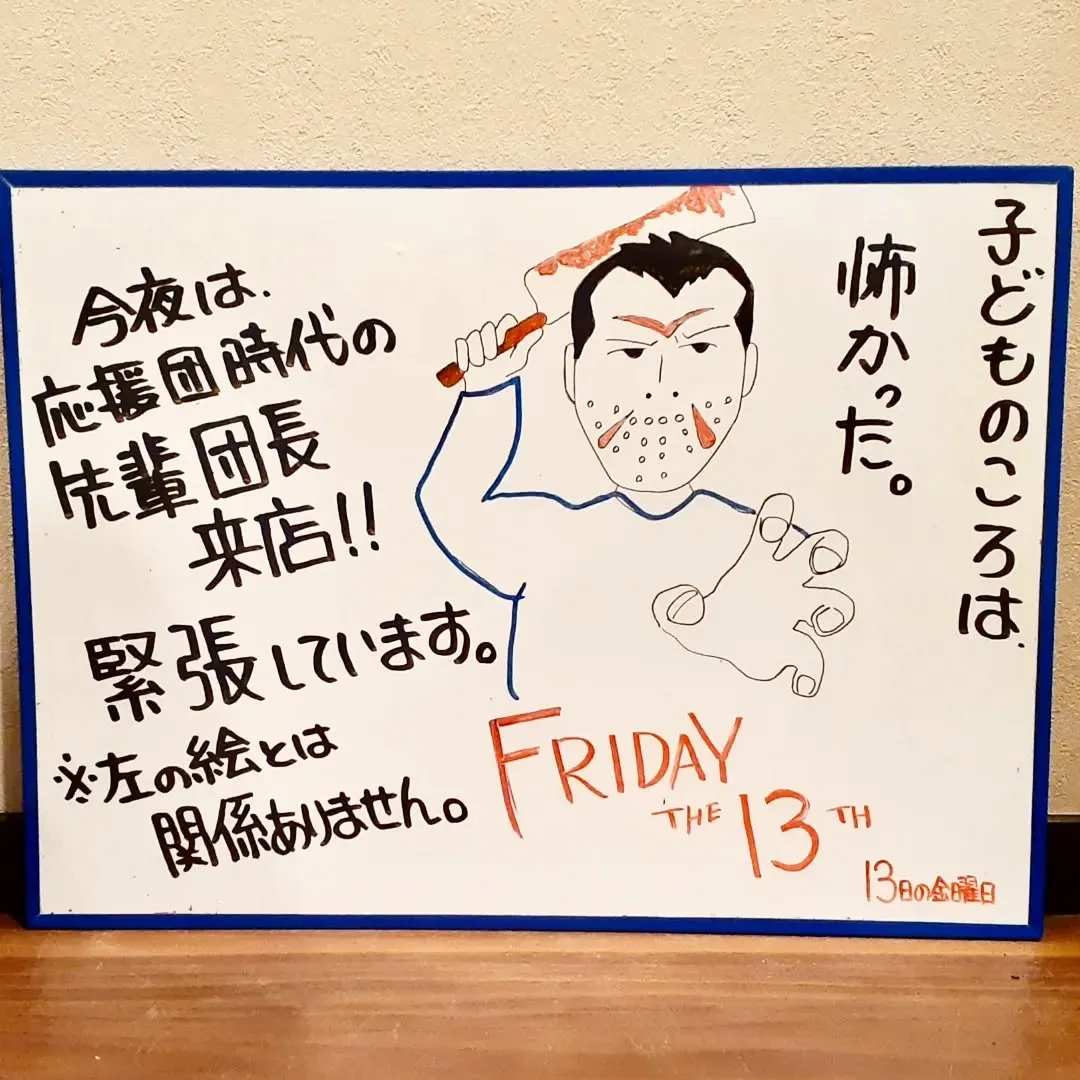 子どものころは、
怖かった。
今夜は、
応援団時代の
先輩団長
来店!!
緊張しています。
※左の絵とは
関係ありません。
FRIDAY
THE 13TH
13日の金曜日